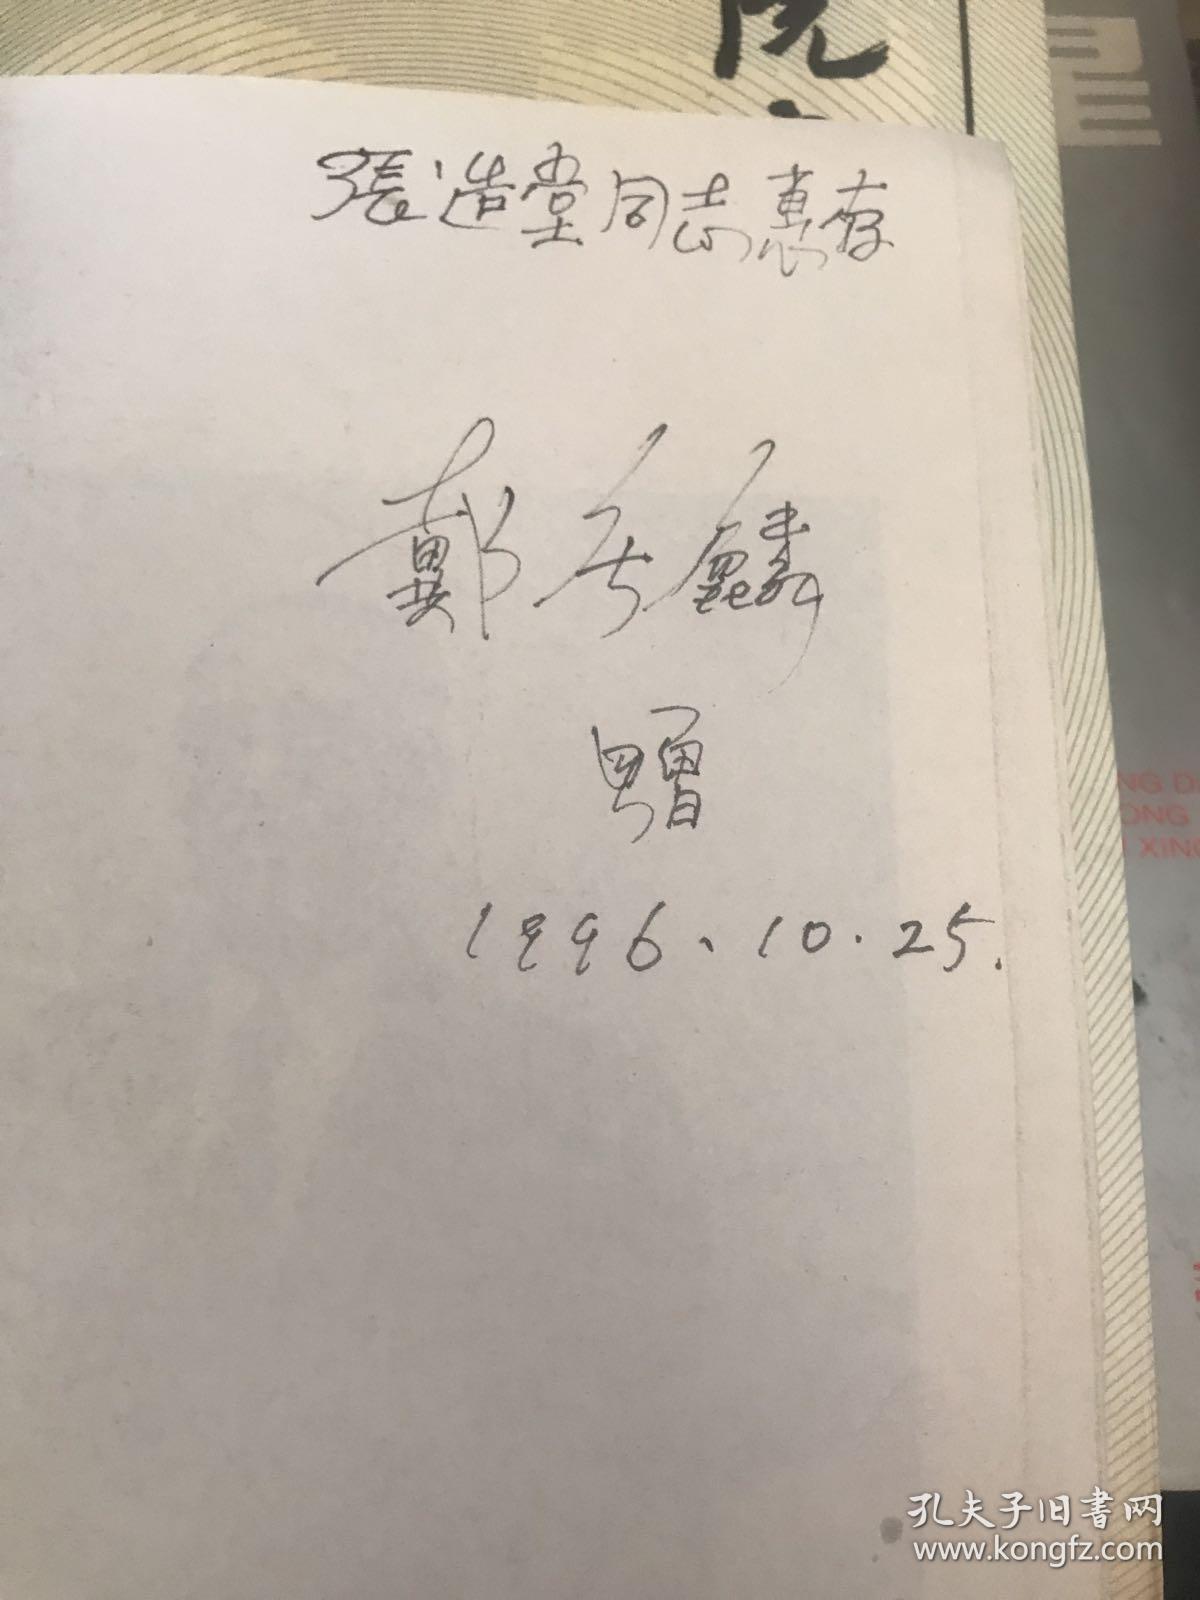 院
張造堂同志惠存
贈
1996、10.25.
NG D
ONG
XING
孔夫子旧書网
www.kongfz.com